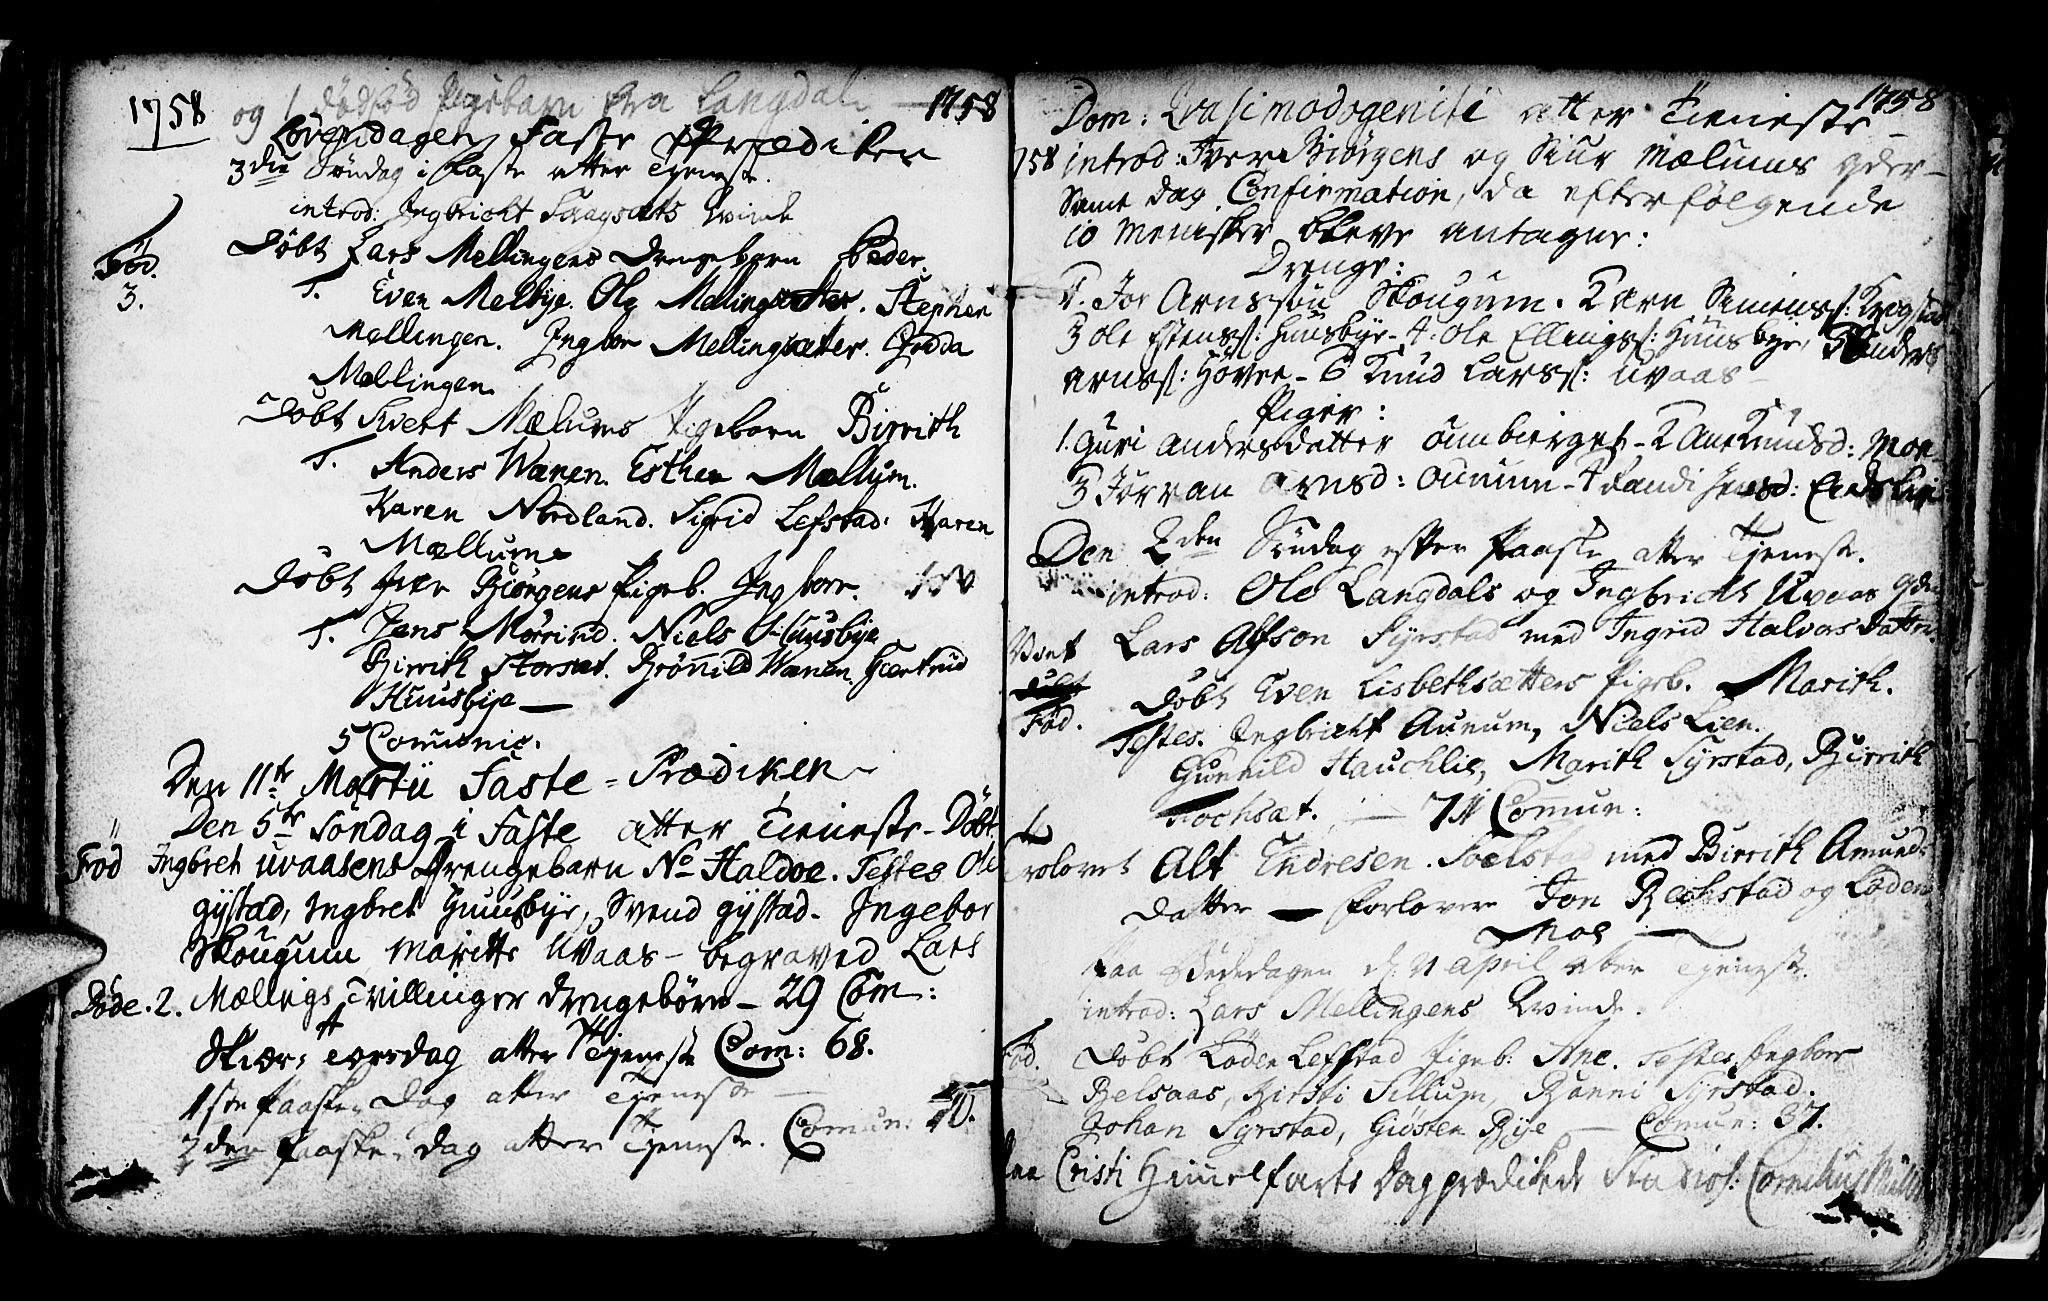 1758 og 1 dødfød Pigebarn fra Langdal — 1758
Løverdagen Faste Prædiken
3die Søndag i Faste atter Tjeneste.
introd: Ingbricht Qvinde
Døbt Lars Mellingens Drengebarn Peder.
Fød.
3.
T. Even Melbye. Ole Mellingsætter. Stephen
Mellingen. Ingbor Mellingsæter. Gjedda
Mellingen
Døbt Sivert Mælums Pigebarn Birrith
T. Anders Wænen. Esther Mællum.
Karen Nordland. Sigrid Lefstad. Karen
Mællum
Døbt Iver Biørgens Pigeb. Ingborr.
T. Jens Morrind. Niels Huusbye
Birrith Storsæt. Brønild Wænen. Giertrud
Huusbye —
5 Com̄unic.
Den 11te Martii Faste-Prædiken
Den 5te Søndag i Faste atter Tieneste - Døbt
Fød Ingbret Uvaasens Drengebarn No Haldoe. Testes Ole
Gystad, Ingbret Huusbye, Svend Gystad. Ingebor
Skougum Maritte Uvaas - begraved Lars
Døde. 2. Mællings Tvillinger Drengebørn - 29 Com:
Skiær-Torsdag atter Tjeneste Com: 68.
1ste Paaske Dag atter Tjeneste —
2den Paaske-Dag atter Tjeneste. Comun:
1758
Dom: Qvasimodogeniti atter Tieneste
758 introd: Iver Biørgens og Siur Mælums qder —
Samme Dag Confirmation, da efterfølgende
10 Menisker bleve antagne:
Drenge:
1. Jor Arnssøn Skougum. 2 Arn Simenss: Krogstad
3 Ole Estenss: Huusbye - 4. Ole Ellingss: Huusbye, 5 Anders
Arnss: Høvee - 6 Knud Larss: Uvaas —
Piger:
1. Guri Andersdatter Aunbierget - 2 Ane Knudsd: Moe
3 Jørran Arnsd: Aunum - 4 Randi
Den 2den Søndag efter Paaske atter Tjeneste.
introd: Ole Langdals og Ingbricht Uvaas qder
Viet Lars Alfson Syrstad med Ingrid Halvorsdatter.
Fød. Døbt Even Lisbethsætters Pigeb. Marith.
Testes. Ingbricht Aunum, Niels Lien.
Gunnild Hauchlie, Marith Syrstad, Birrith
Hochsæt. — 71 Com̄un:
Trolovet Alf Endresen Soelstad med Birrith Amunds
Datter — Forlovere Jon Reckstad og Loden
Moe —
Paa Bededagen d: 21 April atter Tjeneste.
introd: Lars Mellingens Qvinde.
Fød. Døbt Loden Lefstad Pigeb: Ane. Testes, Ingbor
Belsaas, Kirsti Sillum, Rønni Syrstad.
Johan Syrstad, Giøsten Bye — Comun: 37.
Paa Cristi Himelfarts Dag prædikede Studios: Cornelius